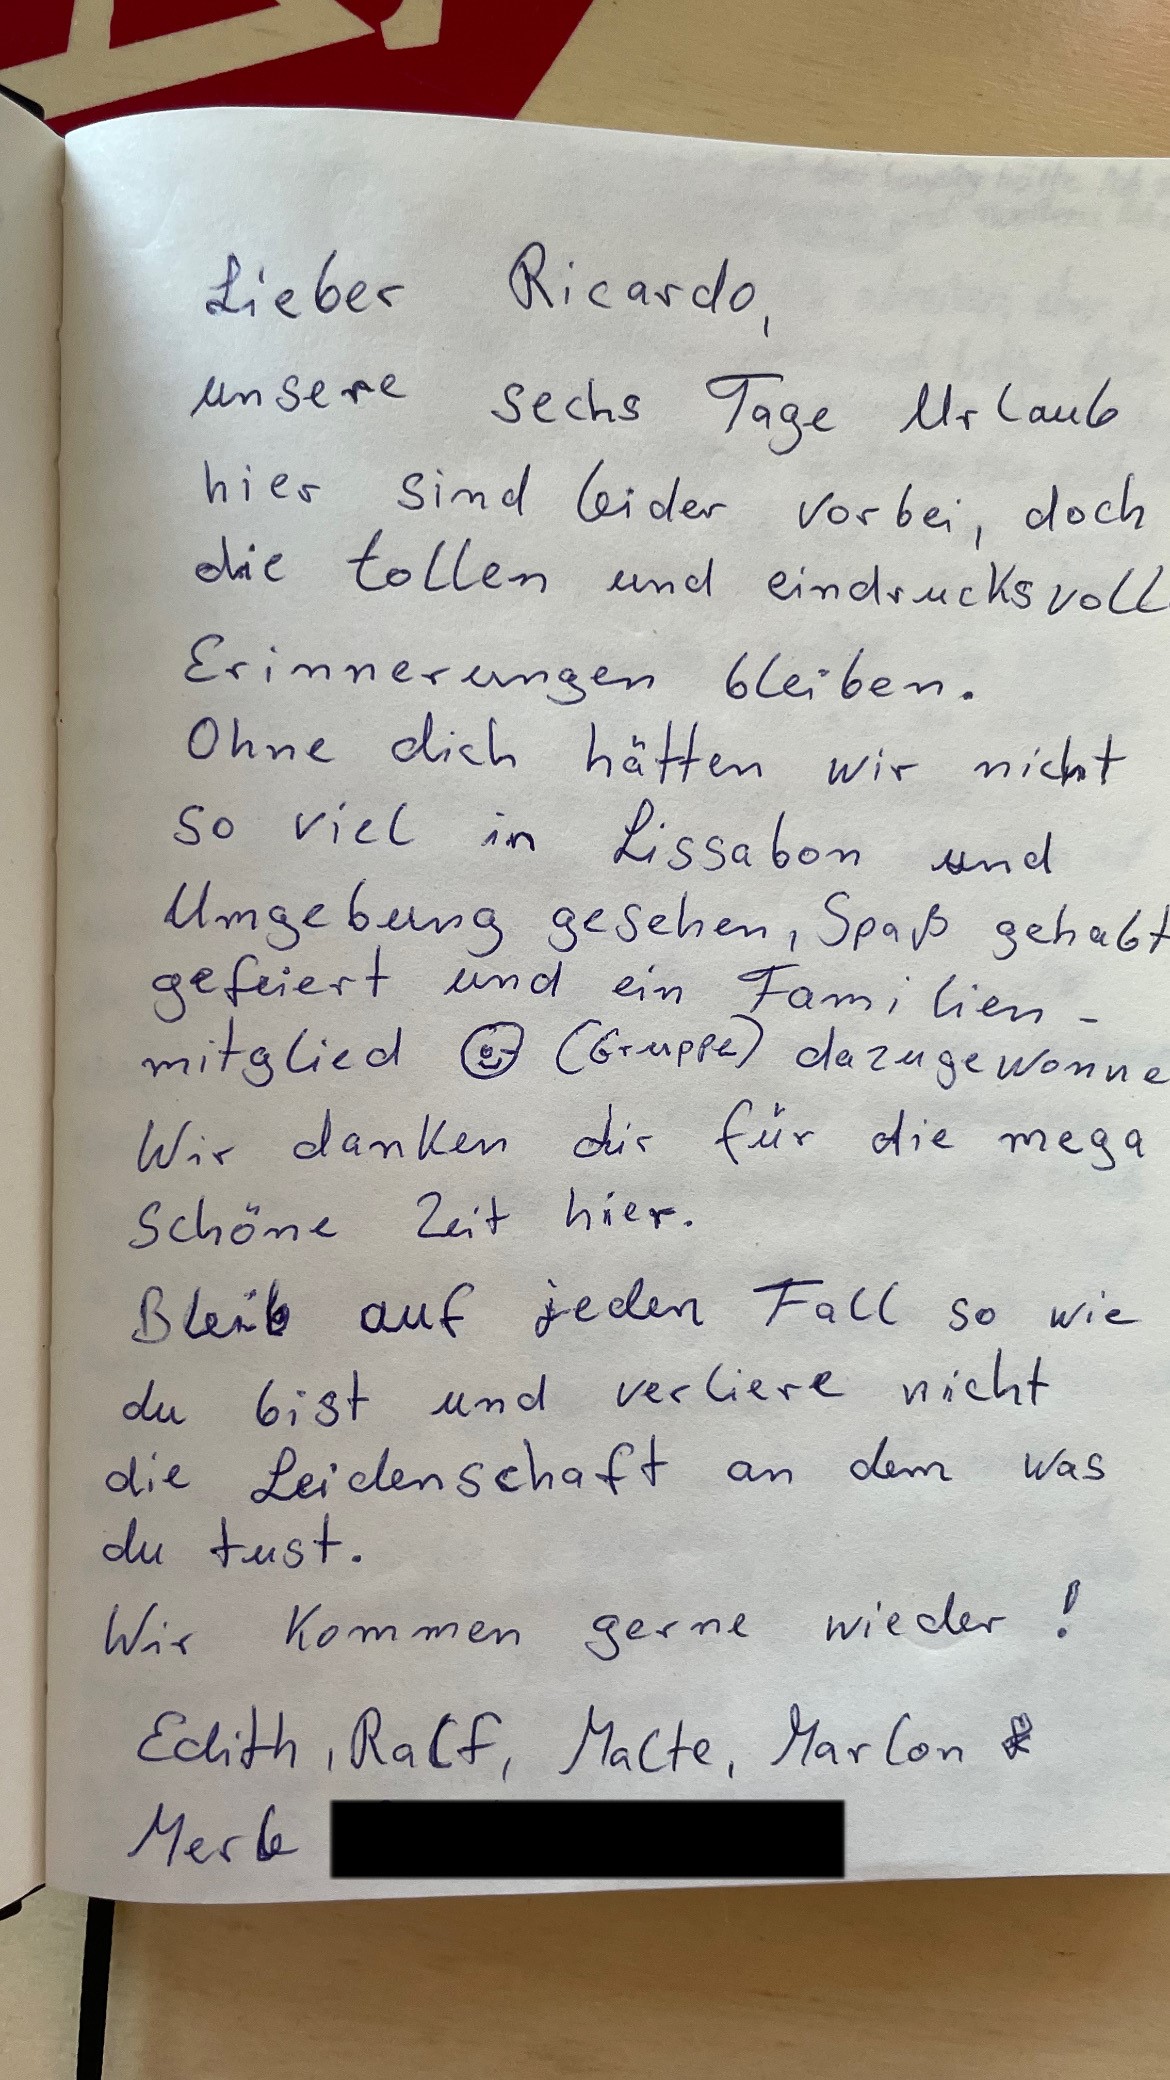 Lieber Ricardo,
unsere sechs Tage Urlaub
hier sind leider vorbei, doch
die tollen und eindrucksvoll
Erinnerungen bleiben.
Ohne dich hätten wir nicht
so viel in Lissabon und
Umgebung gesehen, Spaß gehabt
gefeiert und ein Familien-
mitglied ☺ (Gruppe) dazugewonne
Wir danken dir für die mega
schöne Zeit hier.
Bleib auf jeden Fall so wie
du bist und verliere nicht
die Leidenschaft an dem was
du tust.
Wir kommen gerne wieder!
Edith, Ralf, Malte, Marlon &
Merle